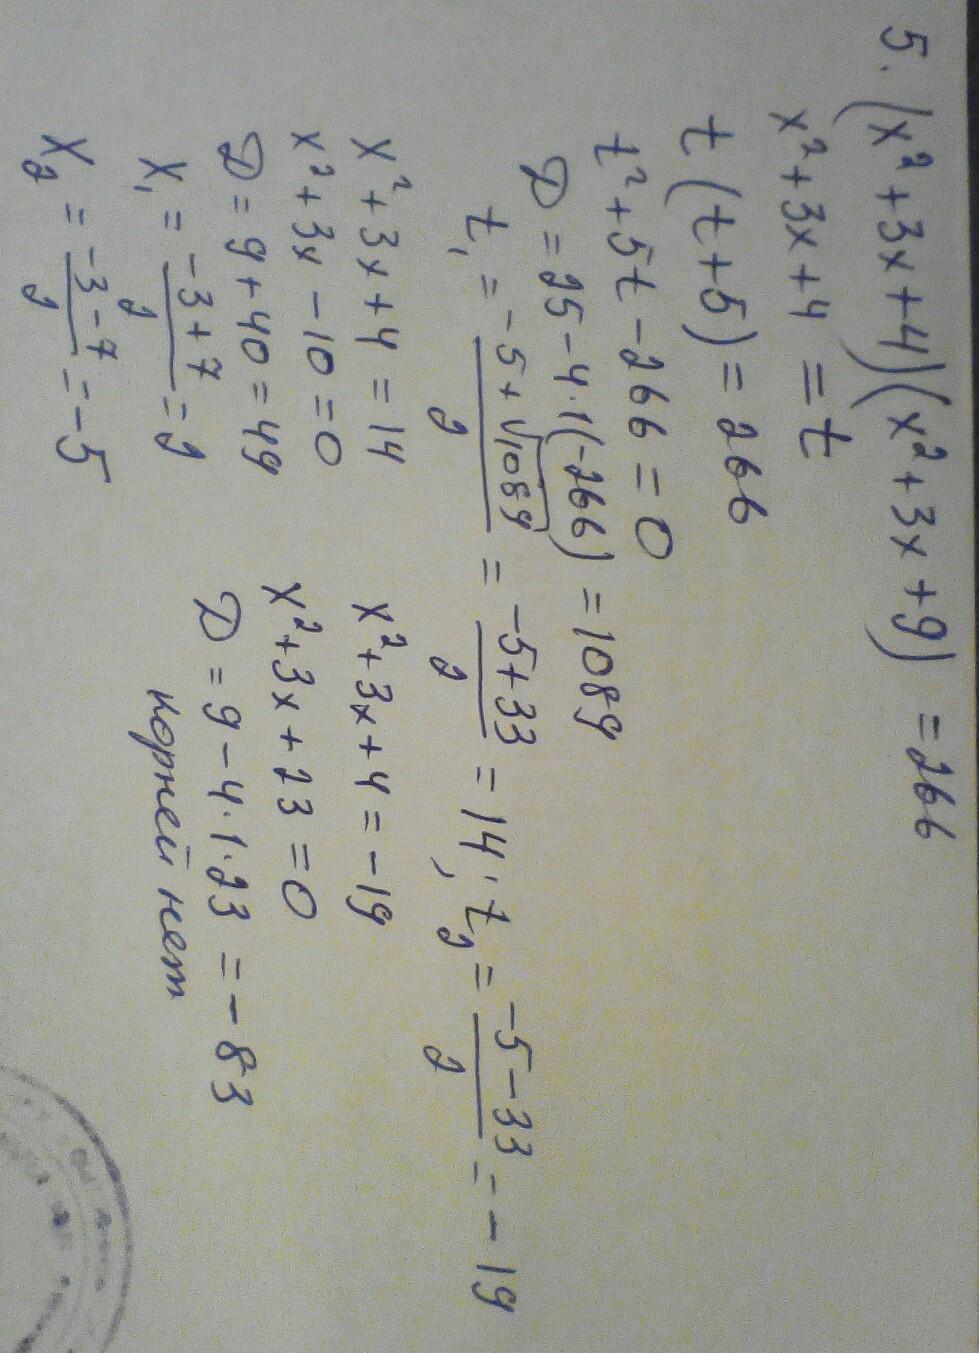 5. (x²+3x+4)(x²+3x+9) =266
x²+3x+4 = t
t(t+5)=266
t²+5t-266=0
D=25-4·1(-266)=1089
t₁ = (-5+√1089)/2 = (-5+33)/2 = 14; t₂ = (-5-33)/2 = -19
x²+3x+4=14
x²+3x-10=0
D=9+40=49
x₁ = (-3+7)/2 = 2
x₂ = (-3-7)/2 = -5
x²+3x+4=-19
x²+3x+23=0
D=9-4·1·23=-83
корней нет